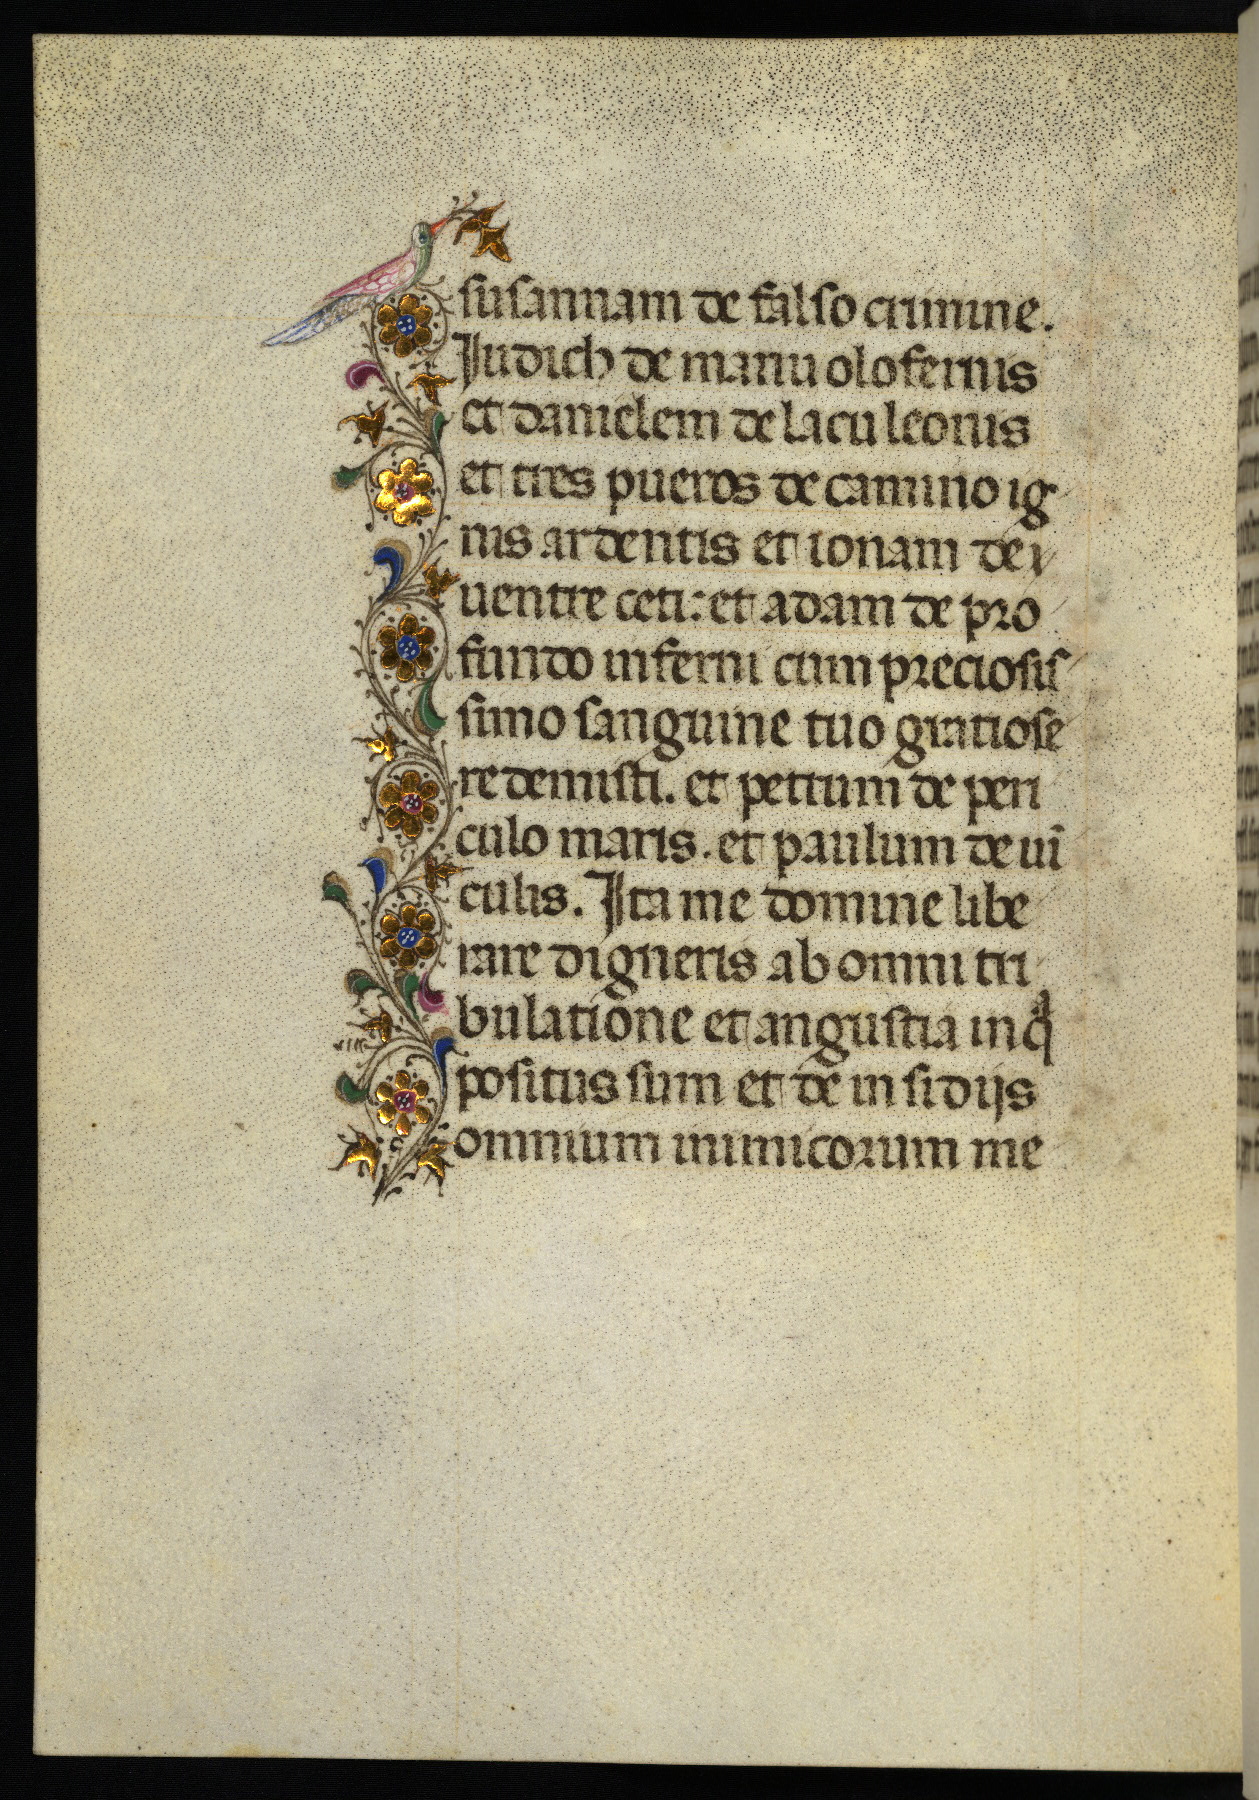 susannam de falso crimine.
Iudich de manu olofernis
et danielem de lacu leonis
et tres pueros de camino ig
nis ardentis et ionam de
uentre ceti: et adam de pro
fundo inferni cum preciosis
simo sanguine tuo gratiose
redemisti. et petrum de peri
culo maris. et paulum de uī
culis. Ita me domine libe
rare digneris ab omni tri
bulatione et angustia in qͣ
positus sum et de insidijs
omnium inimicorum me